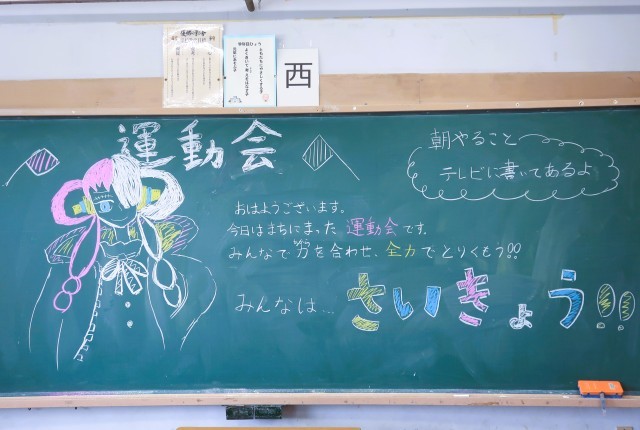 西
運動会
朝やること
テレビに書いてあるよ
おはようございます。
今日はまちにまった 運動会です。
みんなで力を合わせ、全力でとりくもう!!
みんなは… さいきょう!!